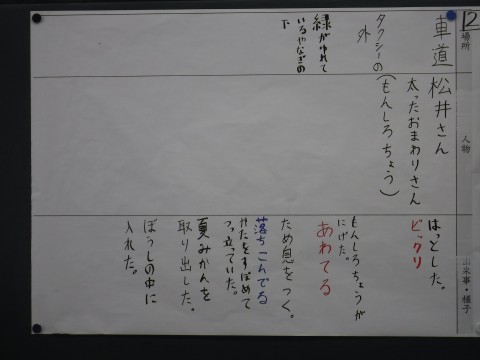 12
場所
人物
出来事・様子
車道
タクシーの
外
緑がゆれて
いるやなぎの
下
松井さん
太ったおまわりさん
(もんしろちょう)
はっとした。
ビックリ
もんしろちょうが
にげた。
あわてる
ため息をつく。
落ちこんでる
かたをすぼめて
つっ立っていた。
夏みかんを
取り出した。
ぼうしの中に
入れた。